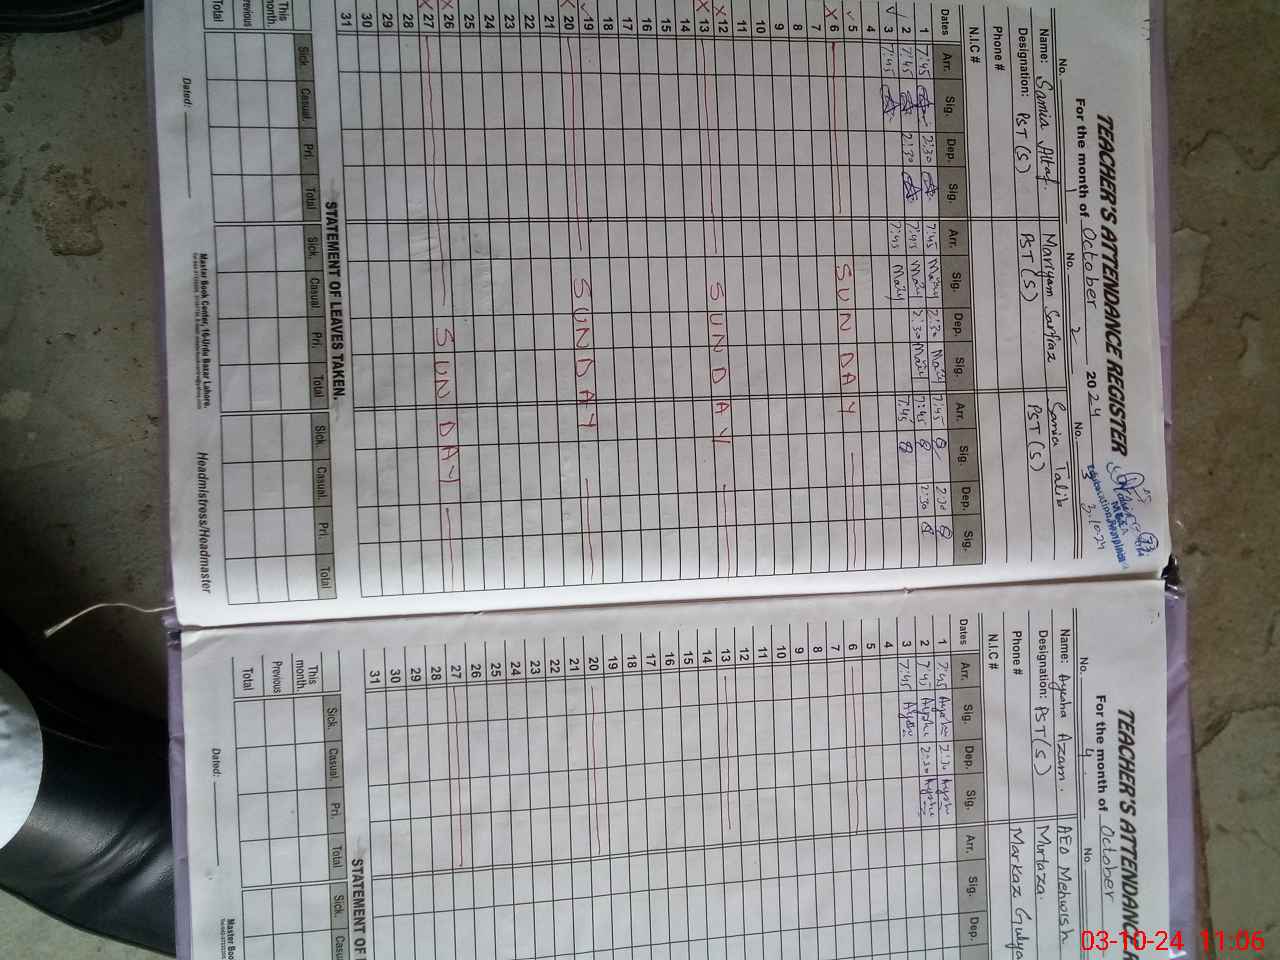 TEACHER'S ATTENDANCE REGISTER
For the month of October 2024
3-10-24
No. 1 No. 2 No. 3
Name: Samia Altaf. Mariyam Sarfraz Sania Talib
Designation: PST(S) PST(S) PST(S)
Phone #
N.I.C #
Dates Arr. Sig. Dep. Sig. Arr. Sig. Dep. Sig. Arr. Sig. Dep. Sig.
1 7:45 2:30 7:45 2:30 7:45 2:30
2 7:45 2:30 7:45 2:30 7:45 2:30
3 7:45 7:45 7:45
4
5
6 SUNDAY
7
8
9
10
11
12
13 SUNDAY
14
15
16
17
18
19
20 SUNDAY
21
22
23
24
25
26
27 SUNDAY
28
29
30
31
STATEMENT OF LEAVES TAKEN.
Sick. Casual. Pri. Total Sick. Casual. Pri. Total Sick. Casual. Pri. Total
This month.
Previous
Total
Dated:
Master Book Center, 16-Urdu Bazar Lahore.
Headmistress/Headmaster
TEACHER'S ATTENDANCE
For the month of October
No. 4 No
Name: Aysha Azam. AEO Mehwish
Designation: PST(S) Murtaza.
Phone # Markaz
N.I.C #
Dates Arr. Sig. Dep. Sig. Arr. Sig. Dep.
1 7:45 Aysha 2:30 Aysha
2 7:45 Aysha 2:30 Aysha
3 7:45 Aysha
4
5
6
7
8
9
10
11
12
13
14
15
16
17
18
19
20
21
22
23
24
25
26
27
28
29
30
31
STATEMENT OF
Sick. Casual. Pri Total Sick.
This month.
Previous
Total
Dated:
Master
03-10-24 11:06